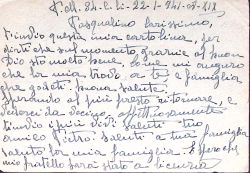 Pasqualino Carissimo,
Ti invio questa mia cartolina, per
dirti che sul momento, grazie al buon
Dio sto molto bene, come mi auguro
che la mia trova a te e famiglia
che godete, buona salute.
Sperando al più presto ritornare, e
vederci da vicino, affettuosamente
ti invio i più vivi saluti tuo
amico Pietro. Saluti a tua famiglia
saluto la mia famiglia. E spero che
mio fratello sarà stato a licenza